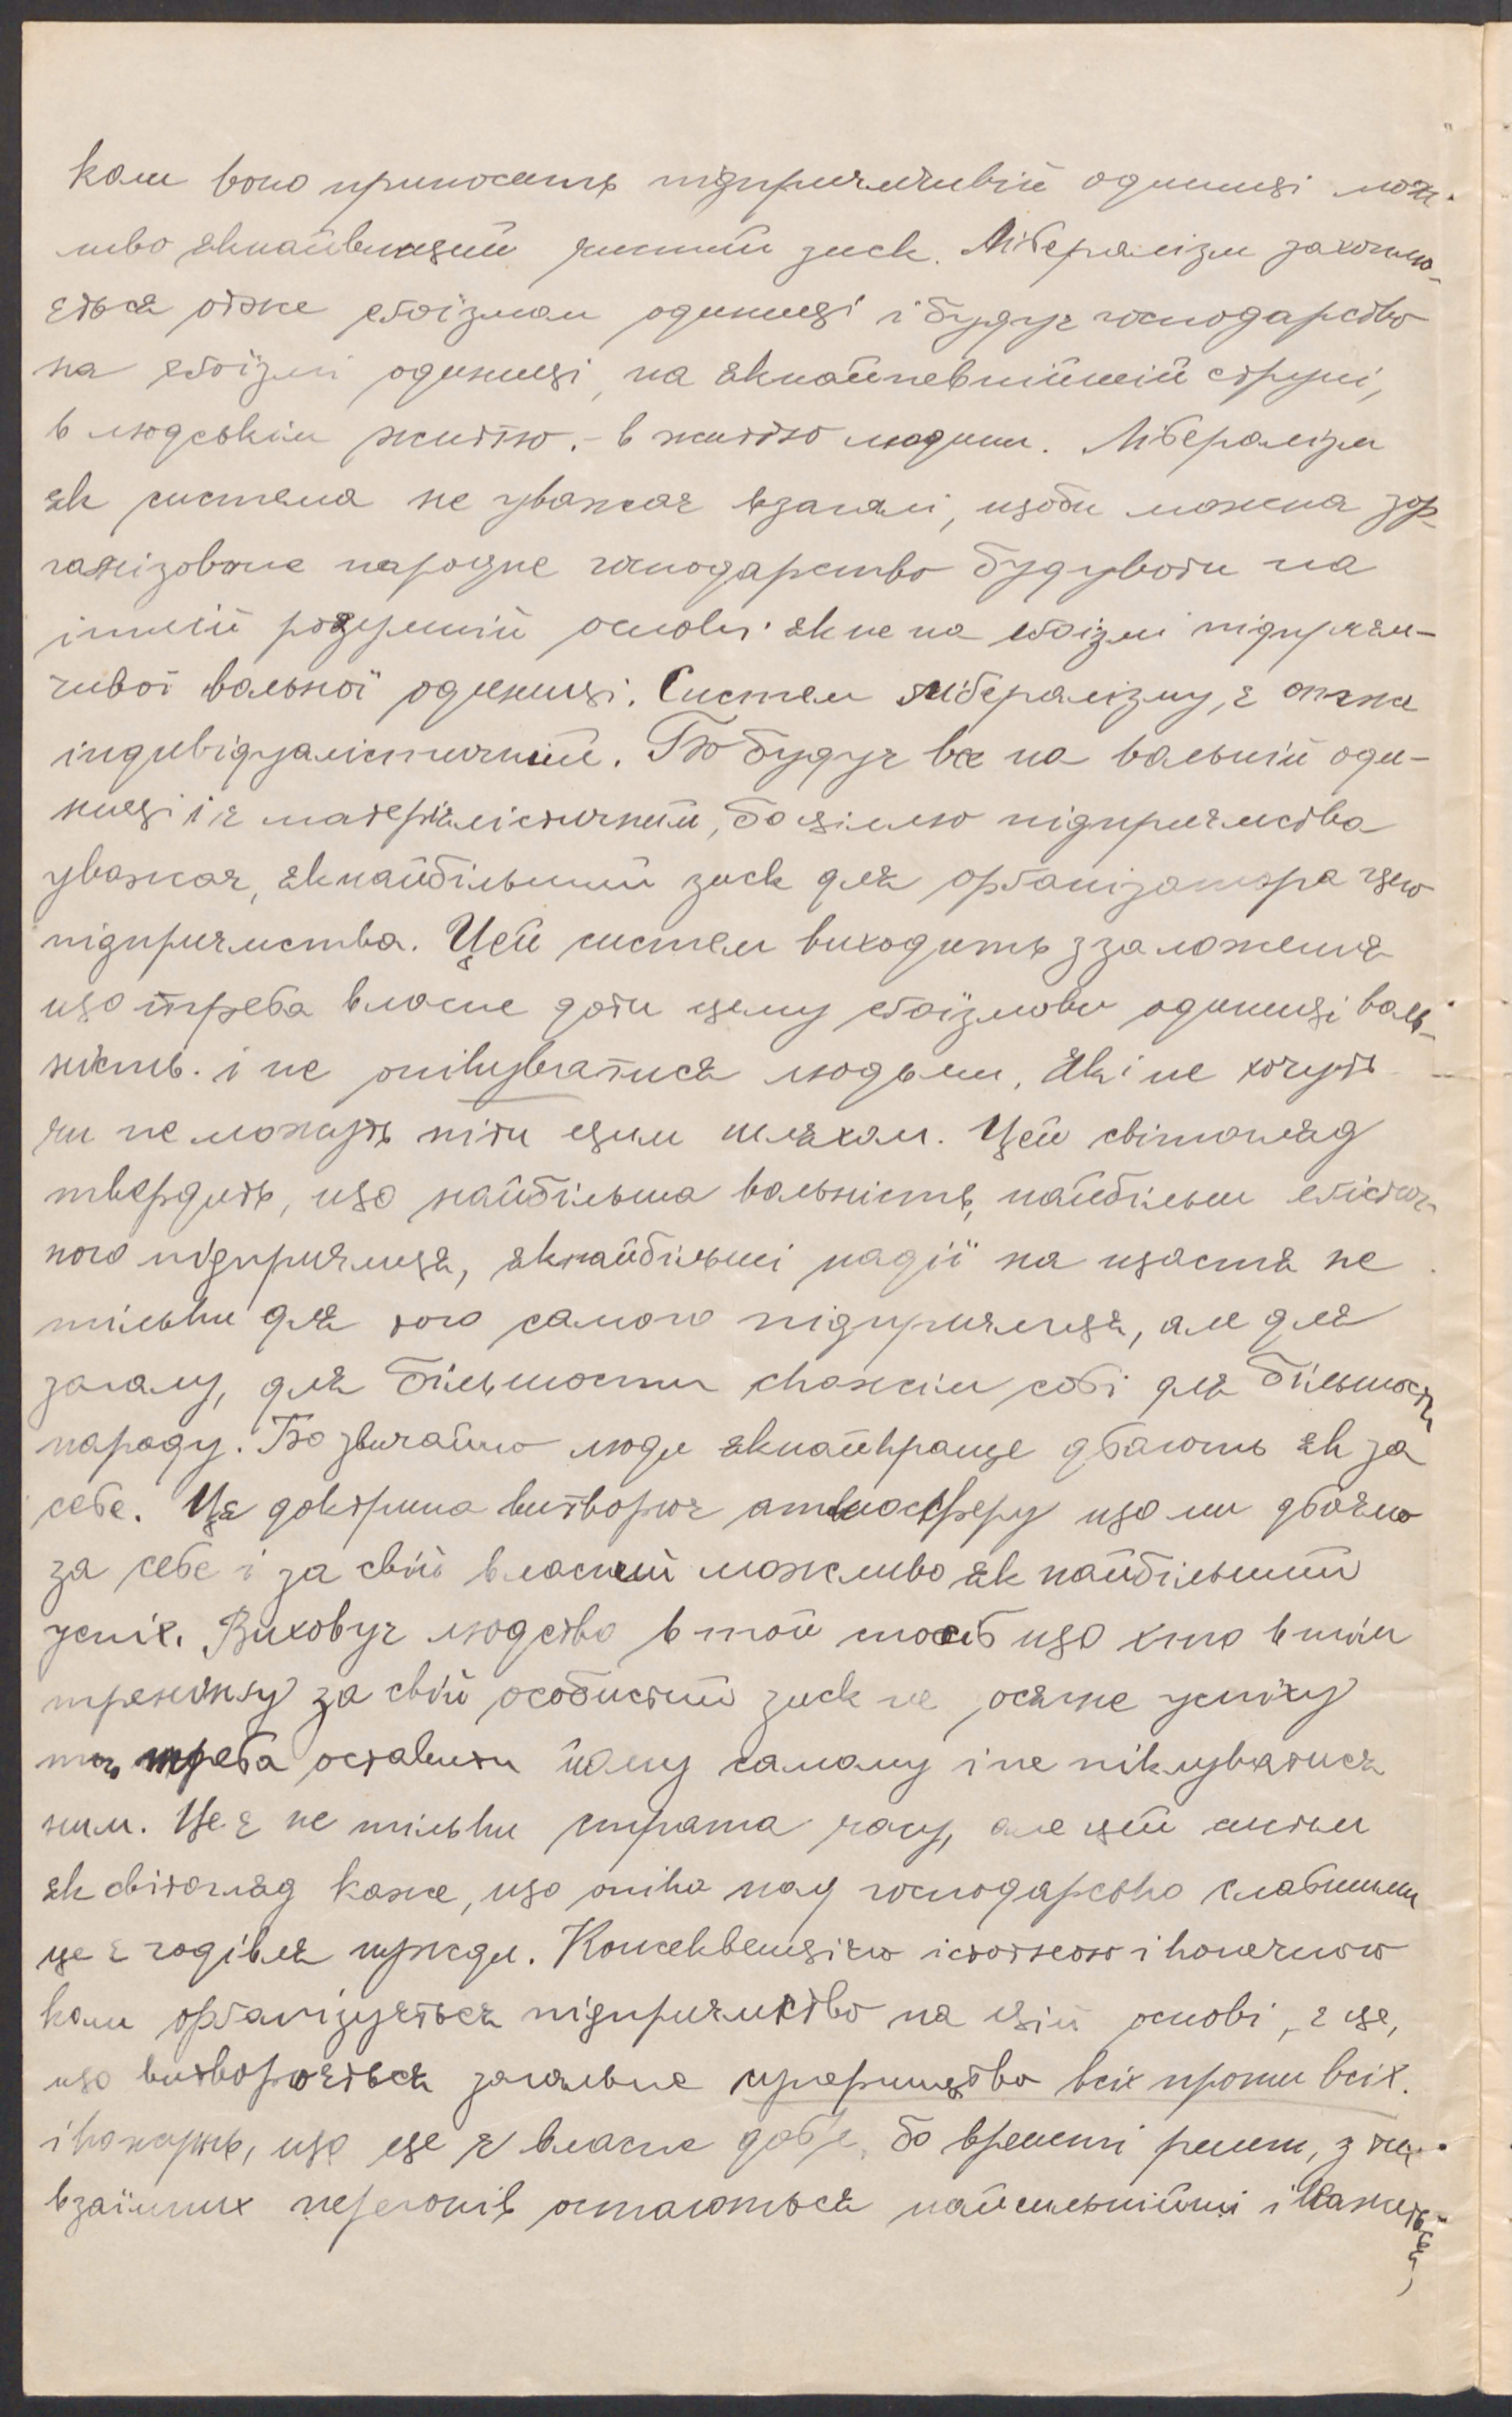 коли воно приносить підприємчивій одиниці мож-
ливо якнайвищий чистий зиск. Лібералізм захоплю-
ється отже еґоїзмом одиниці і будує господарство
на еґоїзмі одиниці, на якнайпевнійшій струні,
в людськім життю. - в життю людини. Лібералізм
як система не уважає взагалі, щоби можна зор-
ганізоване народне господарство будувати на
іншій розумній основі як не на еґоїзмі підприєм-
чивої вольної одиниці. Систем лібералізму, є отже
індивідуалістичний. Бо будує все на вольній оди-
ниці і є матеріялістичний, бо ціллю підприємства
уважає, якнайбільший зиск для орґанізатора цего
підприємства. Цей систем виходить з заложення
що треба власне дати цему еґоїзмови одиниці воль-
ність. і не опікуватися людьми, які не хочуть
чи не можуть піти цим шляхом. Цей світогляд
твердить, що найбільша вольність, найбільш еґоістич-
ного підприємця, якнайбільші надії на щастя не
тільки для того самого підприємця, але для
загалу, для більшости скажім собі для більшости
народу. Бо звичайно люди якнайкраще дбають як за
себе. Ця доктрина витворює атмосферу що ми дбаємо
за себе і за свій власний можливо як найбільший
успіх. Виховує людство в той спосіб що хто в тім
тренінгу за свій особистий зиск не осягне успіху
то треба оставити йому самому і не піклуватися
ним. Це є не тільки страта часу, але цей систем
як світогляд каже, що опіка над господарсько слабшими
це є годівля нужди. Консеквенцією істотною і конечною
коли орґанізується підприємство на цій основі, є це,
що витворюється загальне суперництво всіх проти всіх.
і кажуть, що це є власне добре, бо врешті решт, з тих
взаїмних перегонів остаються найсильнійші і кажеться,